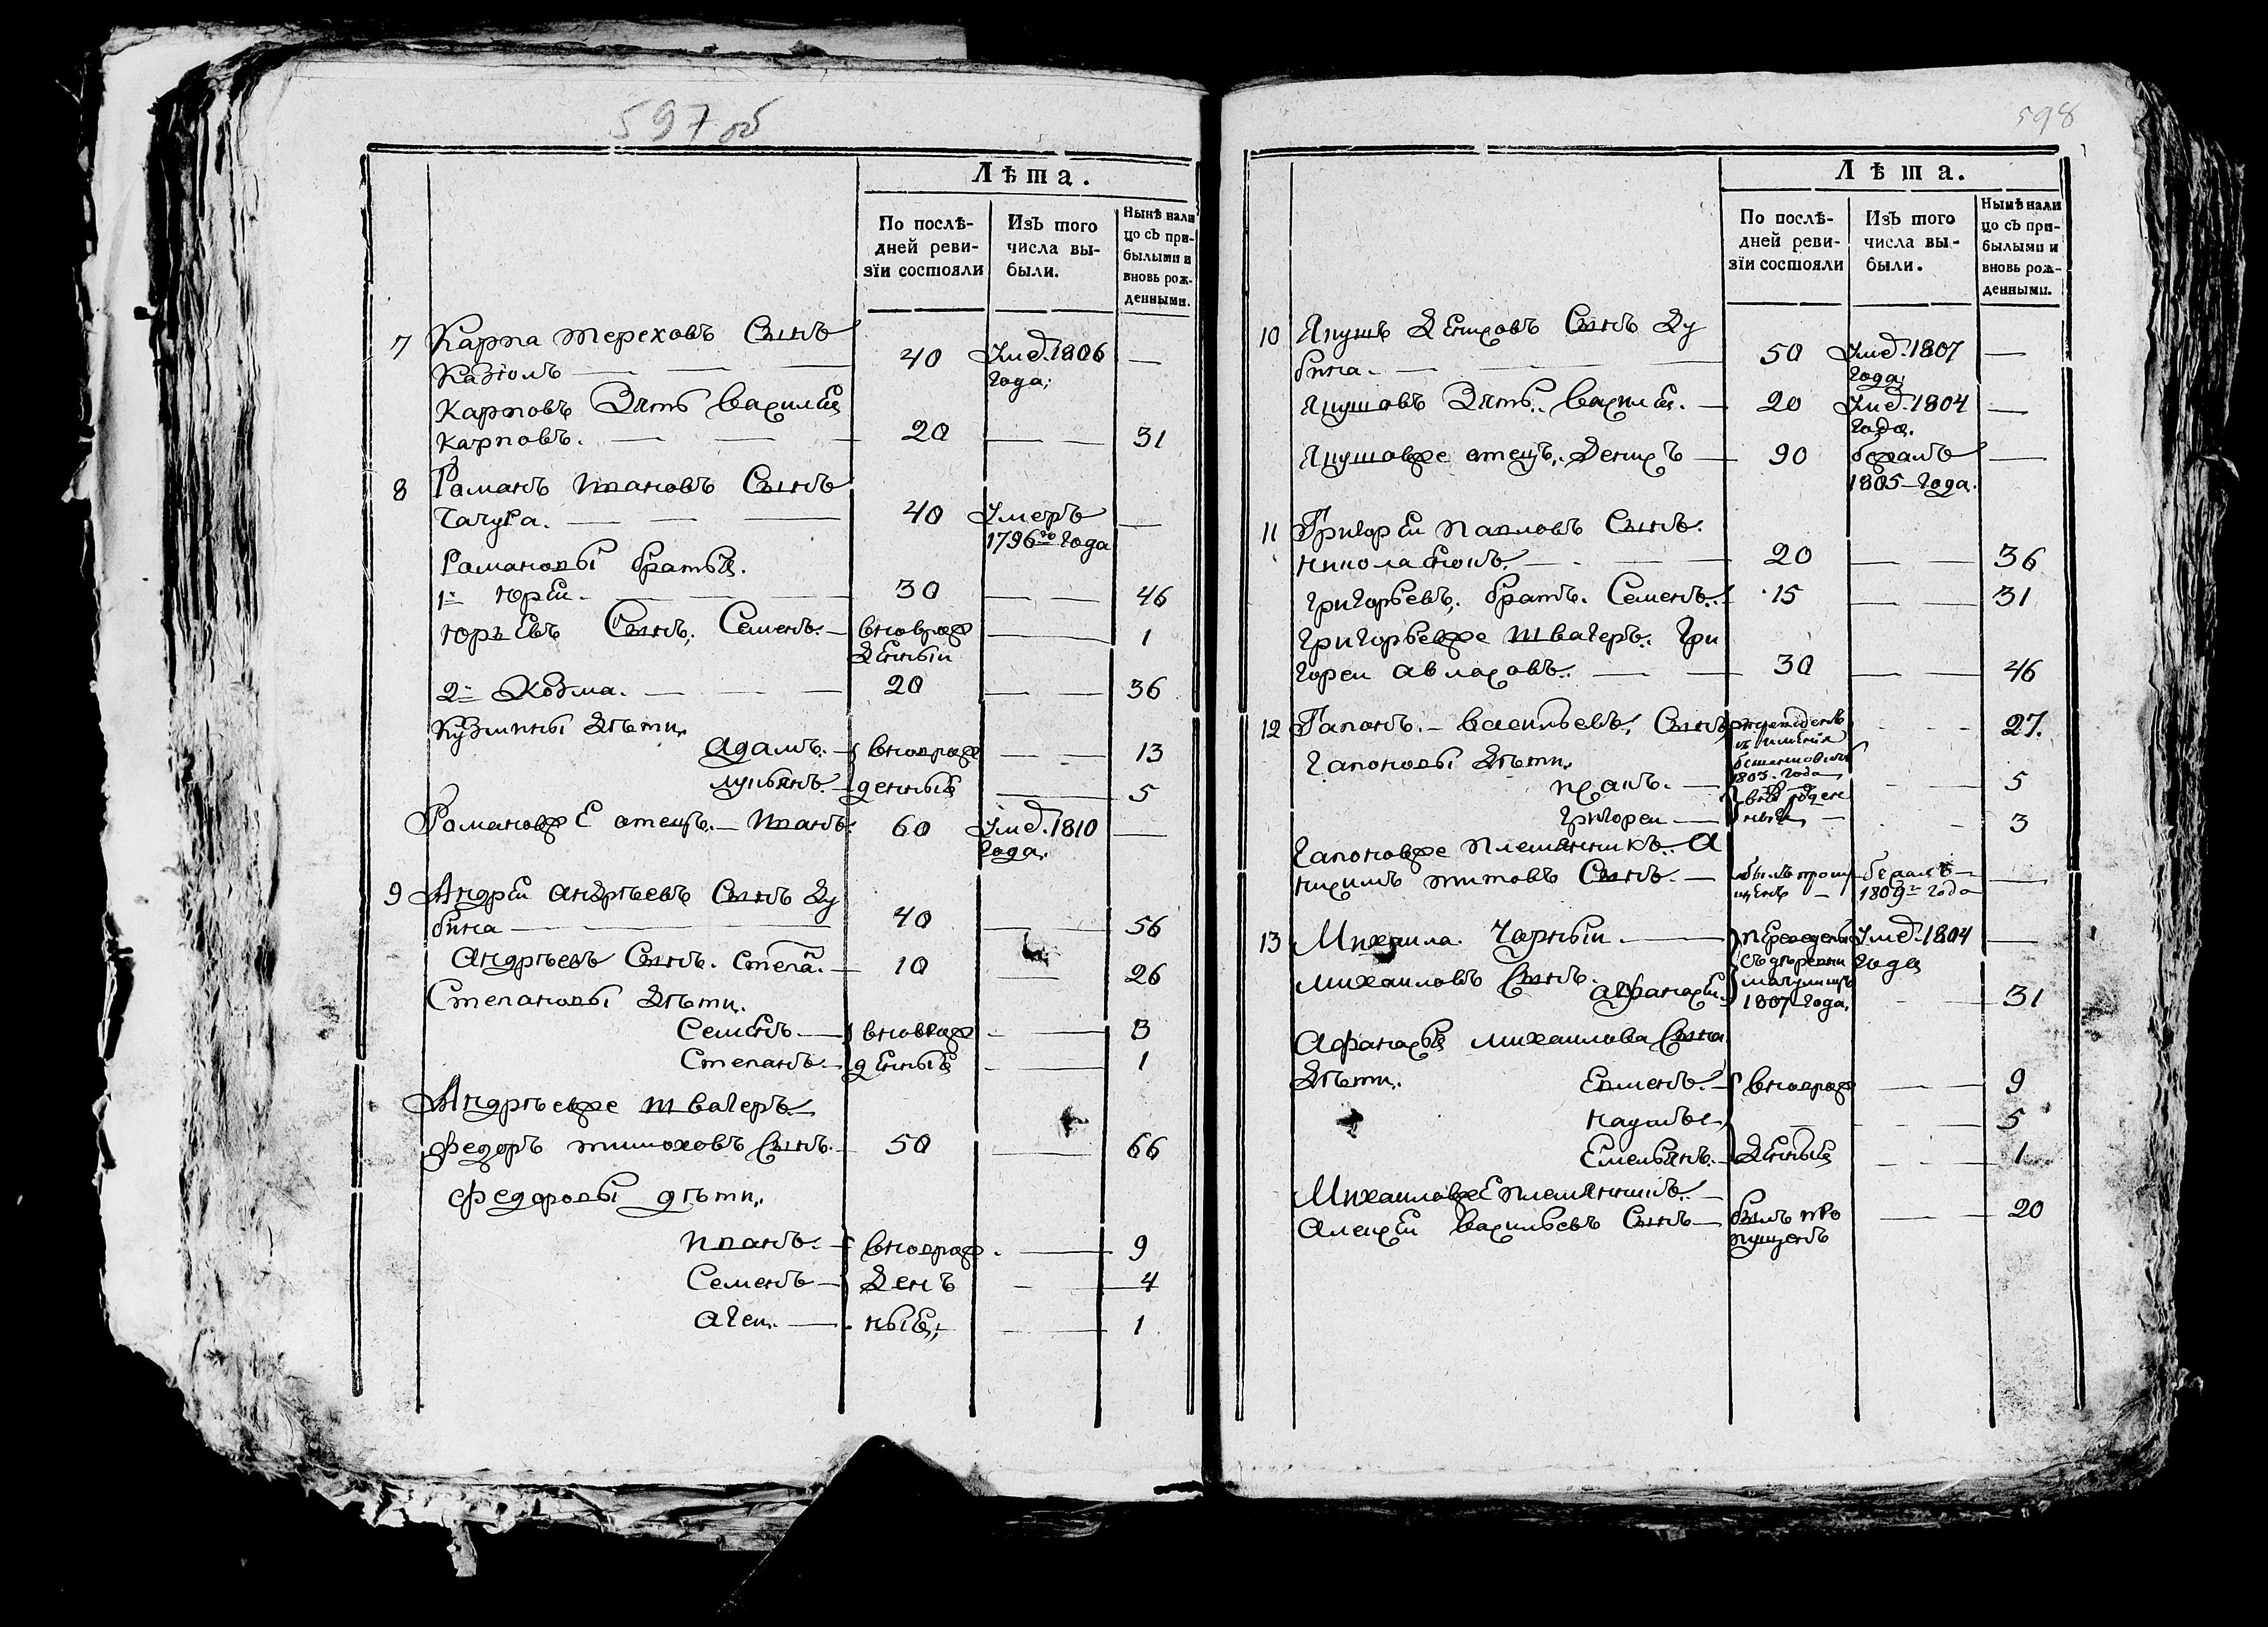 597 об
Лѣта.
По послѣ-
дней реви-
зіи состояли
Изъ того
числа вы-
были.
Нынѣ нали
цо съ при-
былыми и
вновь рож-
денными.
7 Карпа Тереховъ Сынъ
40 Умер. 1806 —
года;
Карповъ Зять Василей
Карповъ. — 20 — 31
8 Романъ Ивановъ Сынъ
40 Умеръ —
1796го года
Романовы братья.
1й Юрей. — 30 — 46
Юрьевъ Сынъ, Семенъ. — вновьрож — 1
денный
2й Козма. — 20 — 36
Кузмины дѣти,
Адамъ. — вноврож — 13
Лукьянъ. — денные — 5
Романовже отецъ. — Иванъ. 60 Умер. 1810 —
года.
9 Андрей Андрѣевъ Сынъ Ду
бина — 40 — 56
Андрѣевъ Сынъ. Степанъ. — 10 — 26
Степановы дѣти,
Семенъ — вноврож — 3
Степанъ. — денные — 1
Андрѣевже швагеръ. —
Федоръ Тимоховъ Сынъ. 50 — 66
Федоровы дѣти,
Иванъ. — вноврож — 9
Семенъ — ден — 4
ные, — 1
598
Лѣта.
По послѣ-
дней реви-
зіи состояли
Изъ того
числа вы-
были.
Нынѣ нали
цо съ при-
былыми и
вновь рож-
денными.
10 Янушъ Денисовъ Сынъ Ду
бина. — 50 Умер. 1807 —
года;
Янушовъ Зять, Василей. — 20 Умер. 1804 —
года.
Янушовже отецъ, Денисъ — 90 бежалъ —
1805 года.
11 Григорей Павловъ Сынъ.
20 — 36
Григорьевъ, братъ. Семенъ. 15 — 31
Григорьевже швагеръ. Гри
горей Авласовъ. — 30 — 46
12 Гапонъ. — Васильевъ, Сынъ — 27.
1805. года
Гапоновы дѣти,
Исакъ. — 5
Григорей — 3
Гапоновже племянникъ. А
нисимъ Титовъ Сынъ. — былъ пропу бежалъ —
щенъ — 1809го года
13 Михаила Чорный. — переведены Умер. 1804 —
съ деревни года
Михаиловъ Сынъ.
Афанасей. 1807 года, — 31
Афанасья Михаилова Сына
дѣти. Еменъ. — вноврож — 9
Наумъ — 5
Емельянъ. — денные — 1
Михаиловже племянникъ. —
Алексей Васильевъ Сынъ — былъ про — 20
пущенъ